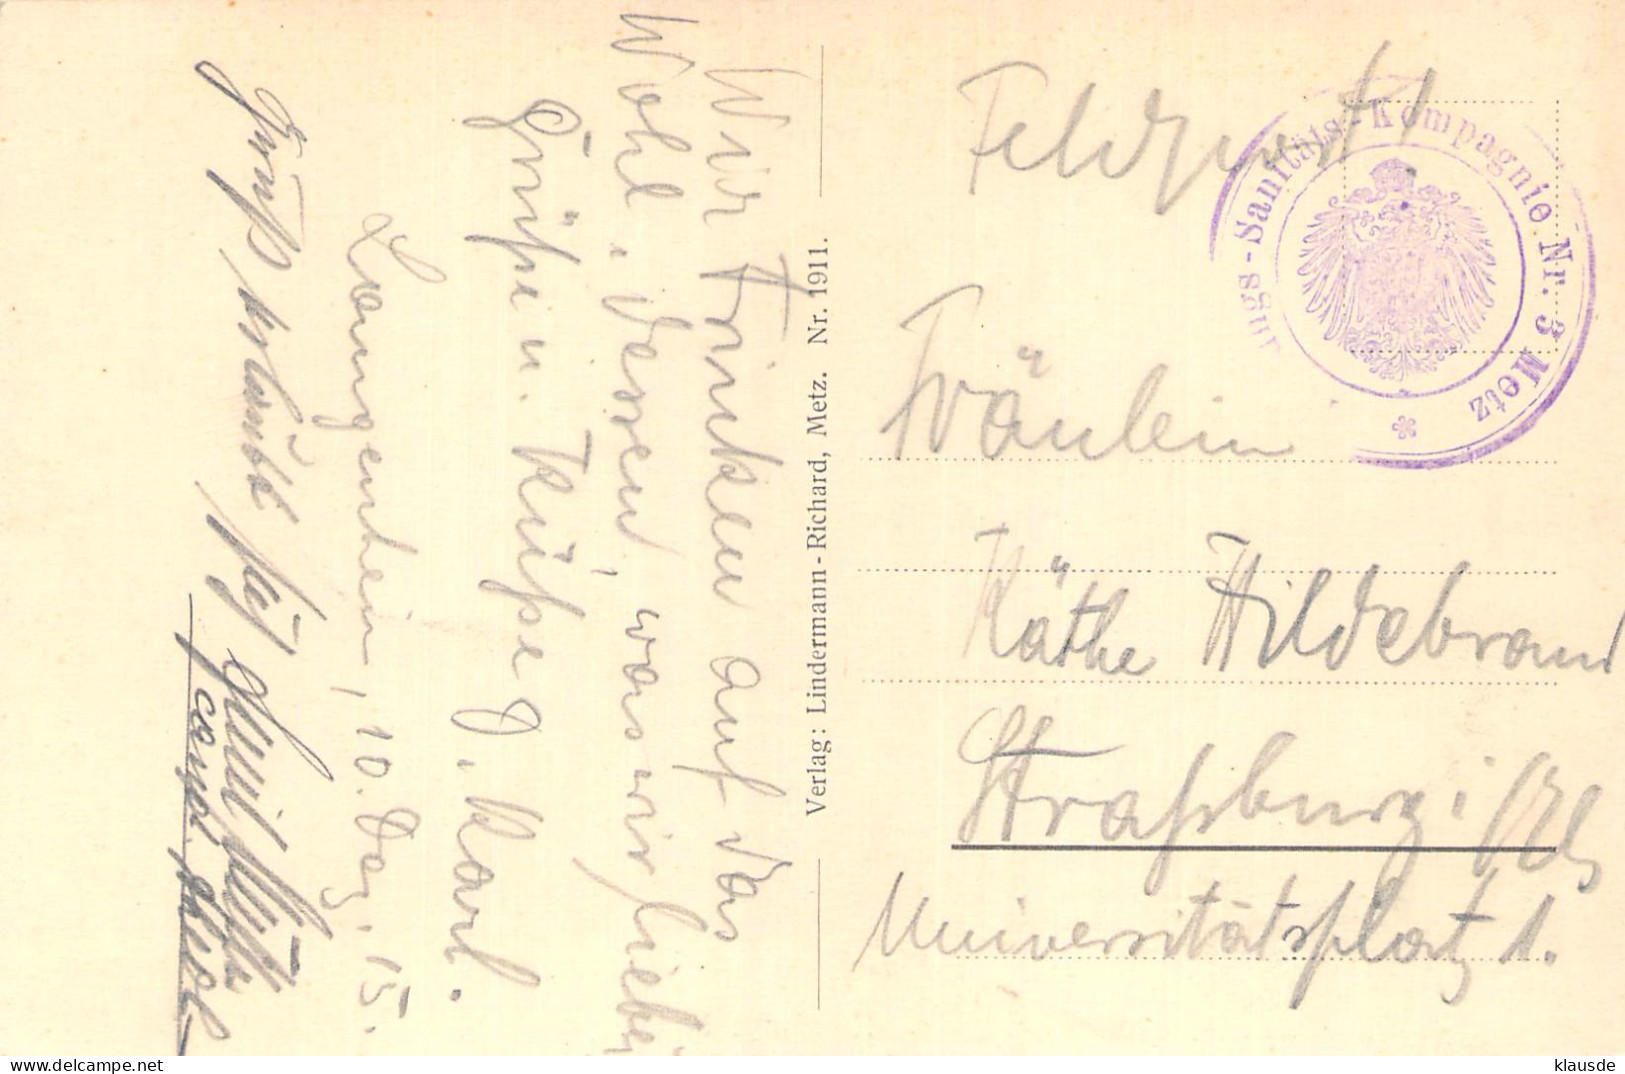 Wir trinken auf das
Wohl, dessen, was wir lieben
Grüße u. Küsse D. Karl.
Longenhein, 10. Dez. 15.
Gruß erlaubt sich
cand.
Verlag: Lindermann-Richard, Metz. Nr. 1911.
Feldpost!
ungs-Sanitäts-Kompagnie Nr. 3 Metz
Fräulein
Käthe Hildebrand
Straßburg i/Els
Universitätsplatz 1.
klausde